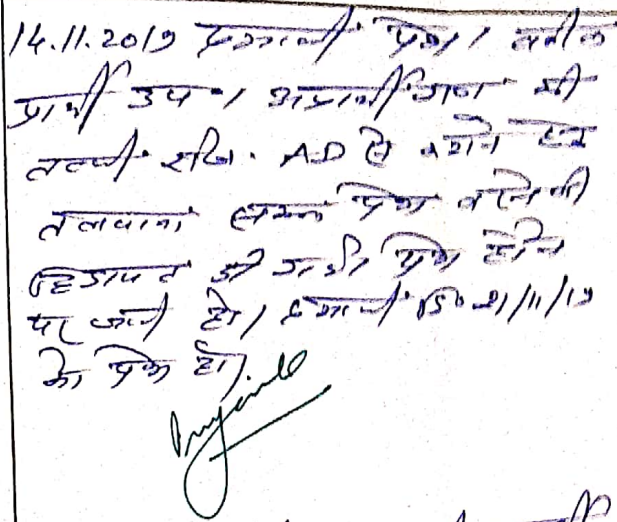 14.11.2019 पत्रावली पेश। वकील
प्रार्थी उप०। अप्रार्थीगण की
तलबी रजि. AD से कराने हेतु
तलवाना समस्त पेश करने की
हिदायत दी गयी। पेश होने
पर जारी हो। पत्रावली दि० 21/11/19
को पेश हो।